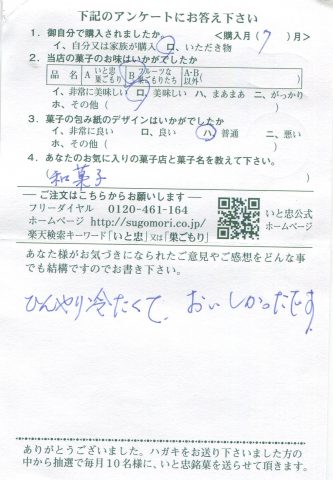 下記のアンケートにお答え下さい
1．御自分で購入されましたか。 ＜購入月( 7 )月＞
イ、自分又は家族が購入 ロ、いただき物
2．当店の菓子のお味はいかがでしたか
品 名 A いと忠巣ごもり B フルーツな巣ごもりたち A・B以外
イ、非常に美味しい ロ、美味しい ハ、まあまあ ニ、がっかり
ホ、その他（ ）
3．菓子の包み紙のデザインはいかがでしたか
イ、非常に良い ロ、良い ハ、普通 ニ、悪い
ホ、その他（ ）
4．あなたのお気に入りの菓子店と菓子名を教えて下さい。
（和菓子 ）
─ ご注文はこちらからお願いします ─
フリーダイヤル 0120-461-164
ホームページ http://sugomori.co.jp/
楽天検索キーワード「いと忠」又は「巣ごもり」
いと忠公式
ホームページ
あなた様がお気づきになられたご意見やご感想をどんな事
でも結構ですのでお書き下さい。
ひんやり冷たくて、おいしかったです
ありがとうございました。ハガキをお送り下さいました方の
中から抽選で毎月10名様に、いと忠銘菓を送らせて頂きます。